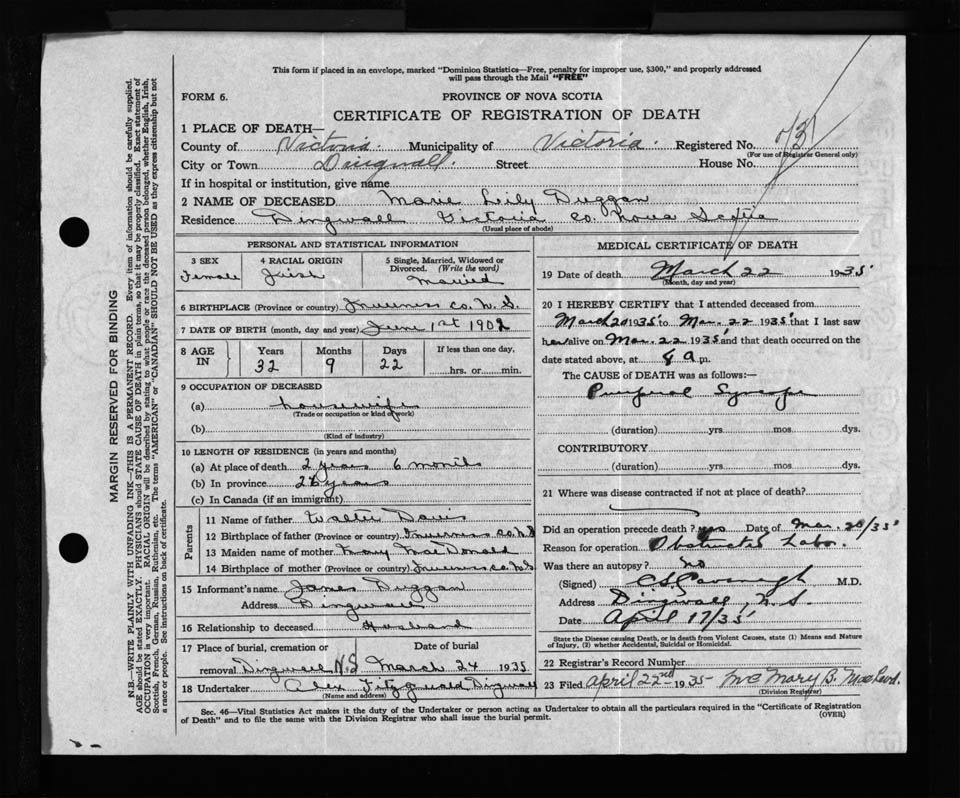 This form if placed in an envelope, marked "Dominion Statistics—Free, penalty for improper use, $300," and properly addressed
will pass through the Mail "FREE"
FORM 6.
PROVINCE OF NOVA SCOTIA
CERTIFICATE OF REGISTRATION OF DEATH
1 PLACE OF DEATH—
County of Victoria. Municipality of Victoria. Registered No.
(For use of Registrar General only)
City or Town Dingwall. Street House No.
If in hospital or institution, give name
2 NAME OF DECEASED Marie Lily Duggan
Residence Dingwall Victoria Co. Nova Scotia
(Usual place of abode)
PERSONAL AND STATISTICAL INFORMATION
3 SEX 4 RACIAL ORIGIN 5 Single, Married, Widowed or
Divorced. (Write the word)
Female Irish Married
6 BIRTHPLACE (Province or country) Inverness Co. N.S.
7 DATE OF BIRTH (month, day and year) June 1st 1902
8 AGE IN Years Months Days If less than one day,
32 9 22 hrs. or min.
9 OCCUPATION OF DECEASED
(a) Housewife
(Trade or occupation or kind of work)
(b)
(Kind of industry)
10 LENGTH OF RESIDENCE (in years and months)
(a) At place of death 2 years 6 months
(b) In province years
(c) In Canada (if an immigrant)
Parents
11 Name of father Walter Davis
12 Birthplace of father (Province or country) Inverness Co. N.S
13 Maiden name of mother Mary MacDonald
14 Birthplace of mother (Province or country) Inverness Co. N.S
15 Informant's name James Duggan
Address Dingwall
16 Relationship to deceased Husband
17 Place of burial, cremation or Date of burial
removal Dingwall N.S March 24 1935
18 Undertaker Alex Fitzgerald Dingwall
(Name and address)
MEDICAL CERTIFICATE OF DEATH
19 Date of death March 22 1935
(Month, day and year)
20 I HEREBY CERTIFY that I attended deceased from
March 20 1935 to Mar. 22 1935 that I last saw
her alive on Mar. 22 1935 and that death occurred on the
date stated above, at 8 a.m.
The CAUSE of DEATH was as follows:—
Puerperal Syncope
(duration) yrs mos dys.
CONTRIBUTORY
(duration) yrs. mos. dys.
21 Where was disease contracted if not at place of death?
Did an operation precede death? yes Date of Mar. 20/35
Reason for operation Obstructed Labor.
Was there an autopsy? no
(Signed) M.D.
Address Dingwall, N.S.
Date April 17/35
State the Disease causing Death, or in death from Violent Causes, state (1) Means and Nature
of Injury, (2) whether Accidental, Suicidal or Homicidal.
22 Registrar's Record Number
23 Filed April 22nd 1935 Mrs Mary B. MacLeod.
(Division Registrar)
Sec. 46—Vital Statistics Act makes it the duty of the Undertaker or person acting as Undertaker to obtain all the particulars required in the "Certificate of Registration
of Death" and to file the same with the Division Registrar who shall issue the burial permit.
(OVER)
MARGIN RESERVED FOR BINDING
N.B.—WRITE PLAINLY WITH UNFADING INK—THIS IS A PERMANENT RECORD. Every item of information should be carefully supplied.
AGE should be stated EXACTLY. PHYSICIANS should STATE CAUSE OF DEATH in plain terms, so that it may be properly classified. Exact statement of
OCCUPATION is very important. RACIAL ORIGIN will be described by stating to what people or race the deceased person belonged, whether English, Irish,
Scottish, French, German, Russian, Ruthenian, etc. The terms "AMERICAN" or "CANADIAN" SHOULD NOT BE USED as they express citizenship but not
a race or people. See instructions on back of certificate.